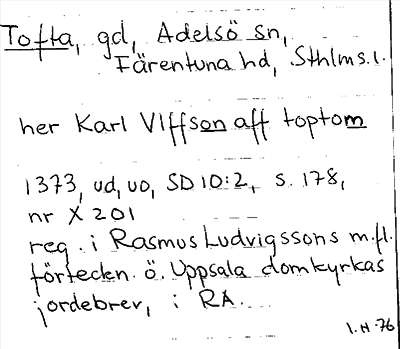 Tofta, gd, Adelsö sn,
Färentuna hd, Sthlms.l.
her Karl Vlffson aff toptom
1373, ud, uo, SD 10:2, s. 178,
nr X 201
reg. i Rasmus Ludvigssons m.fl.
förteckn. ö. Uppsala domkyrkas
jordebrev, i RA.
I.H-76